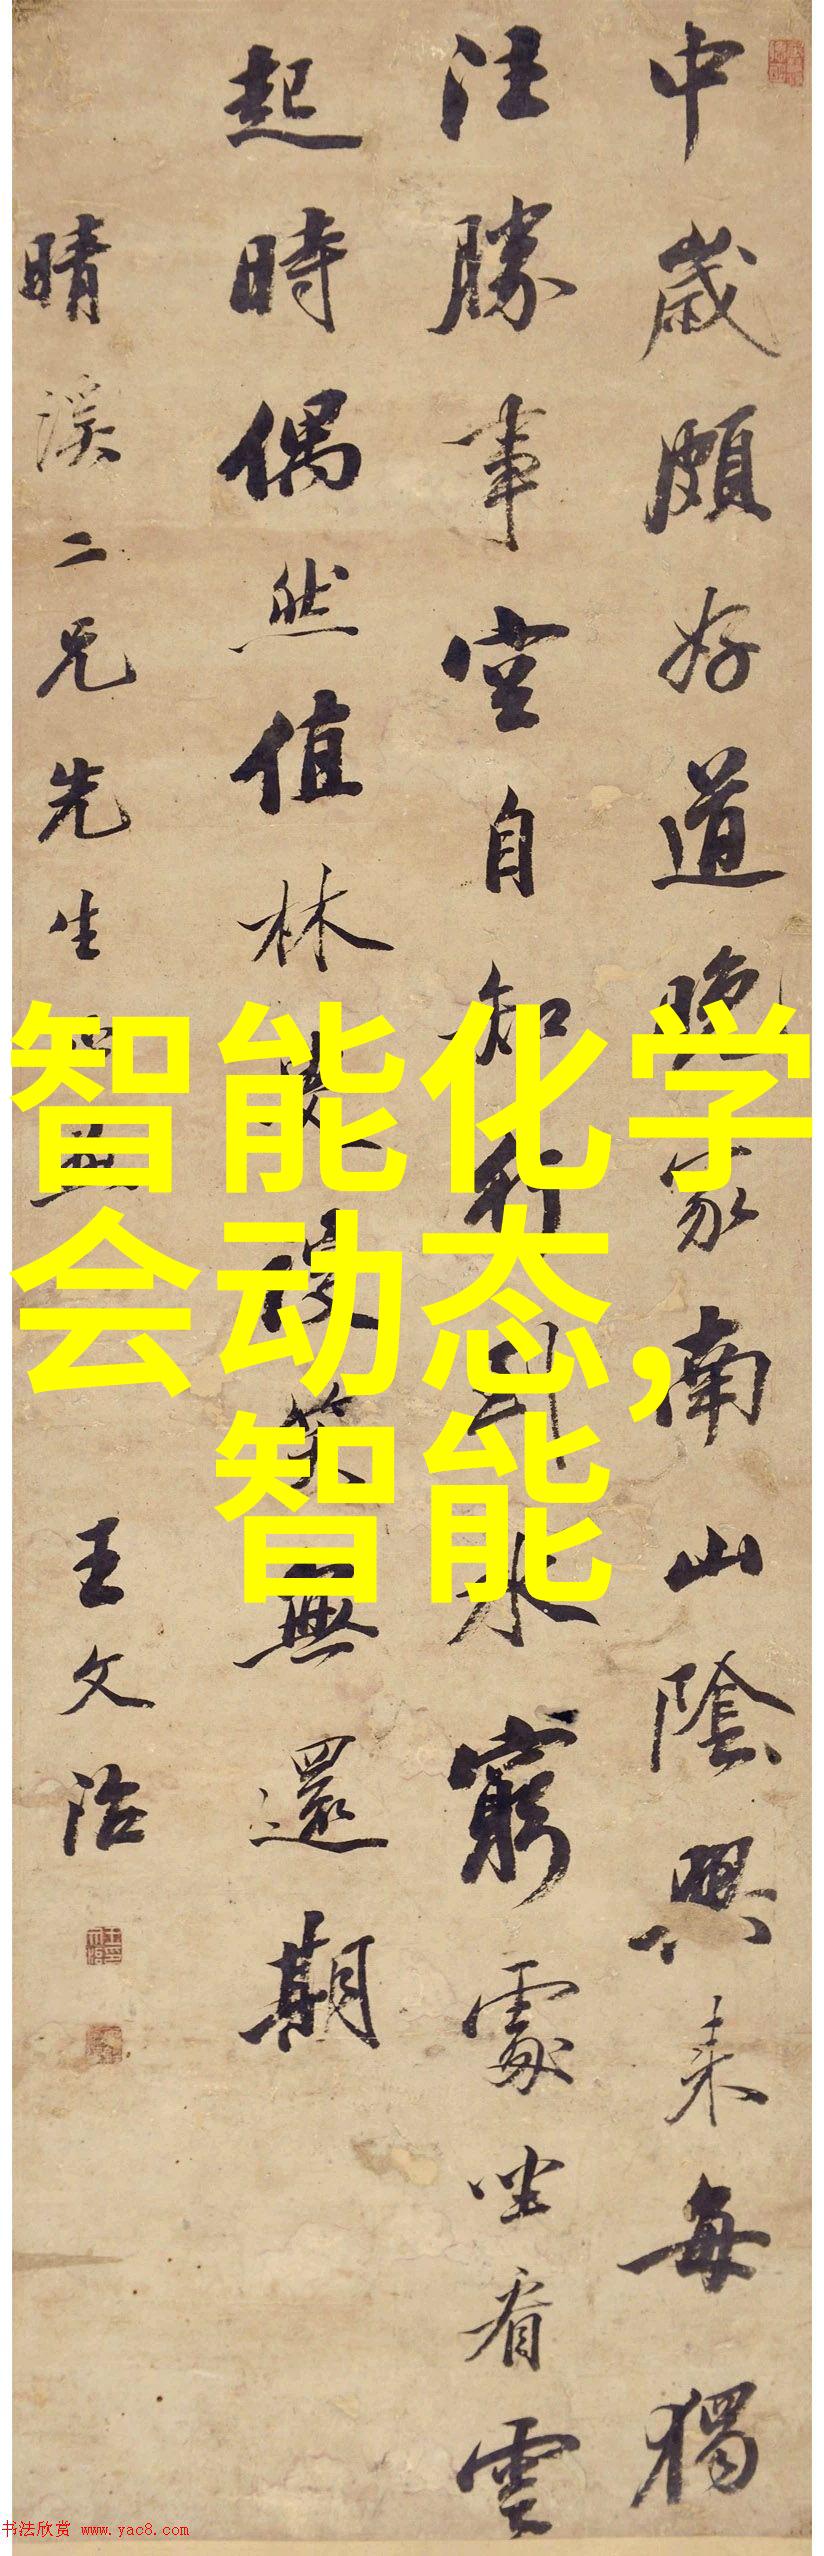 中歲頗好道晚家南山陲興來每獨
往勝事空自知行到水窮處坐看雲
起時偶然值林叟談笑無還期
晴溪二兄先生
王文治
智能化学
会动态,
智能
书法欣赏 www.yac8.com